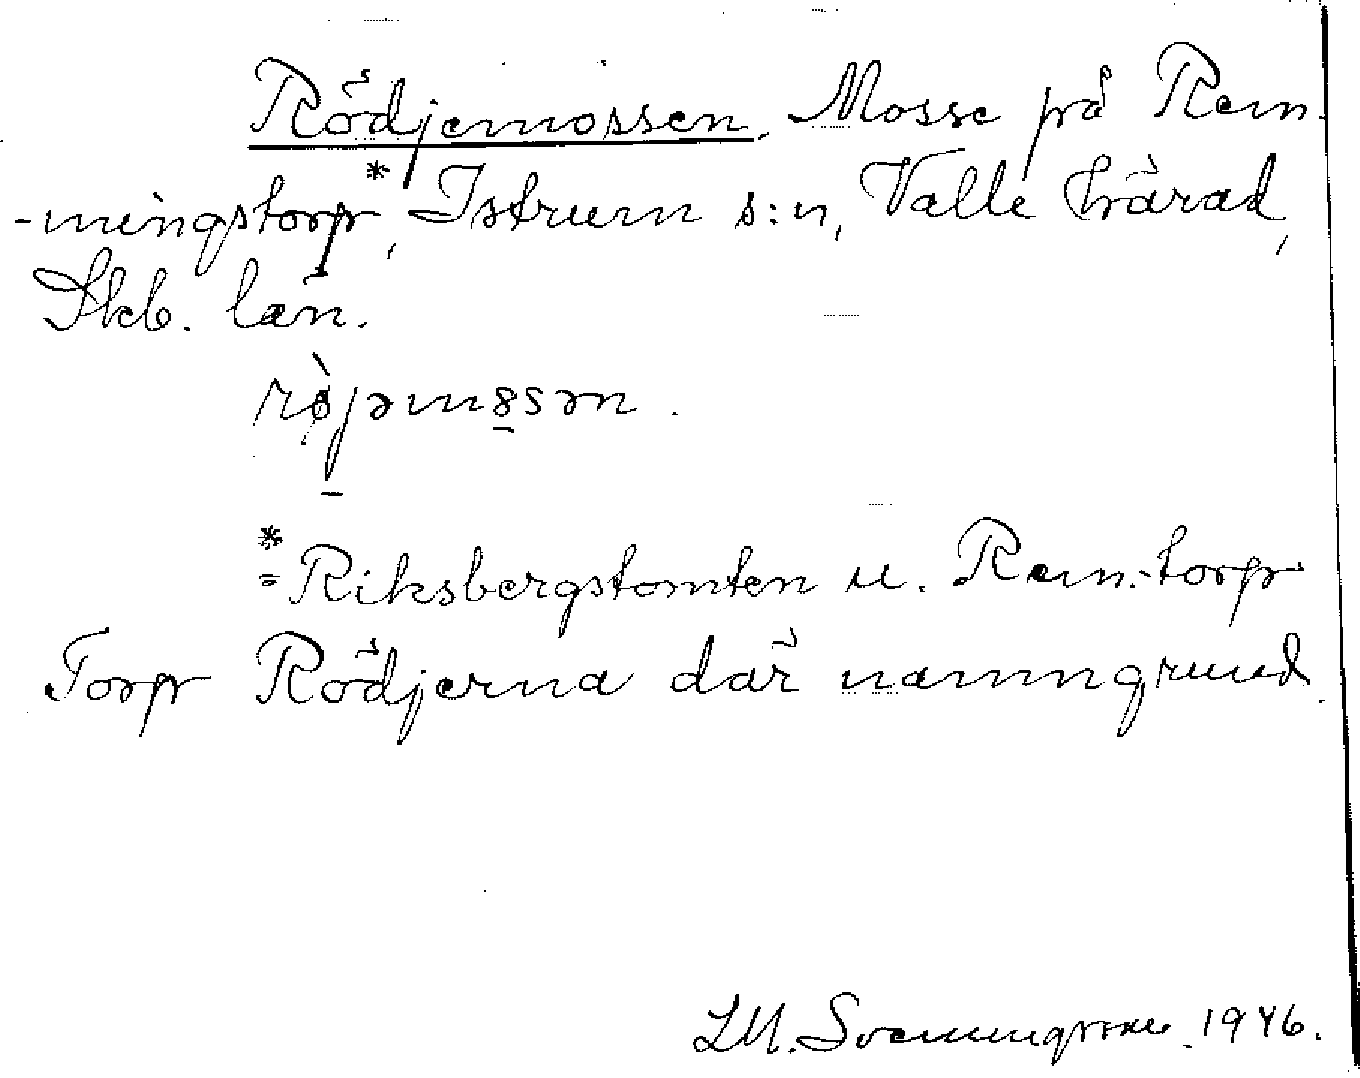 Rödjemossen. Mosse på Rem-
-mingstorp*, Istrum s:n, Valle härad,
Skb. län.
rø̀jəmɷssən.
* = Riksbergstomten u. Rem.-torp
Torp Rödjerna där namngrund.
1946.